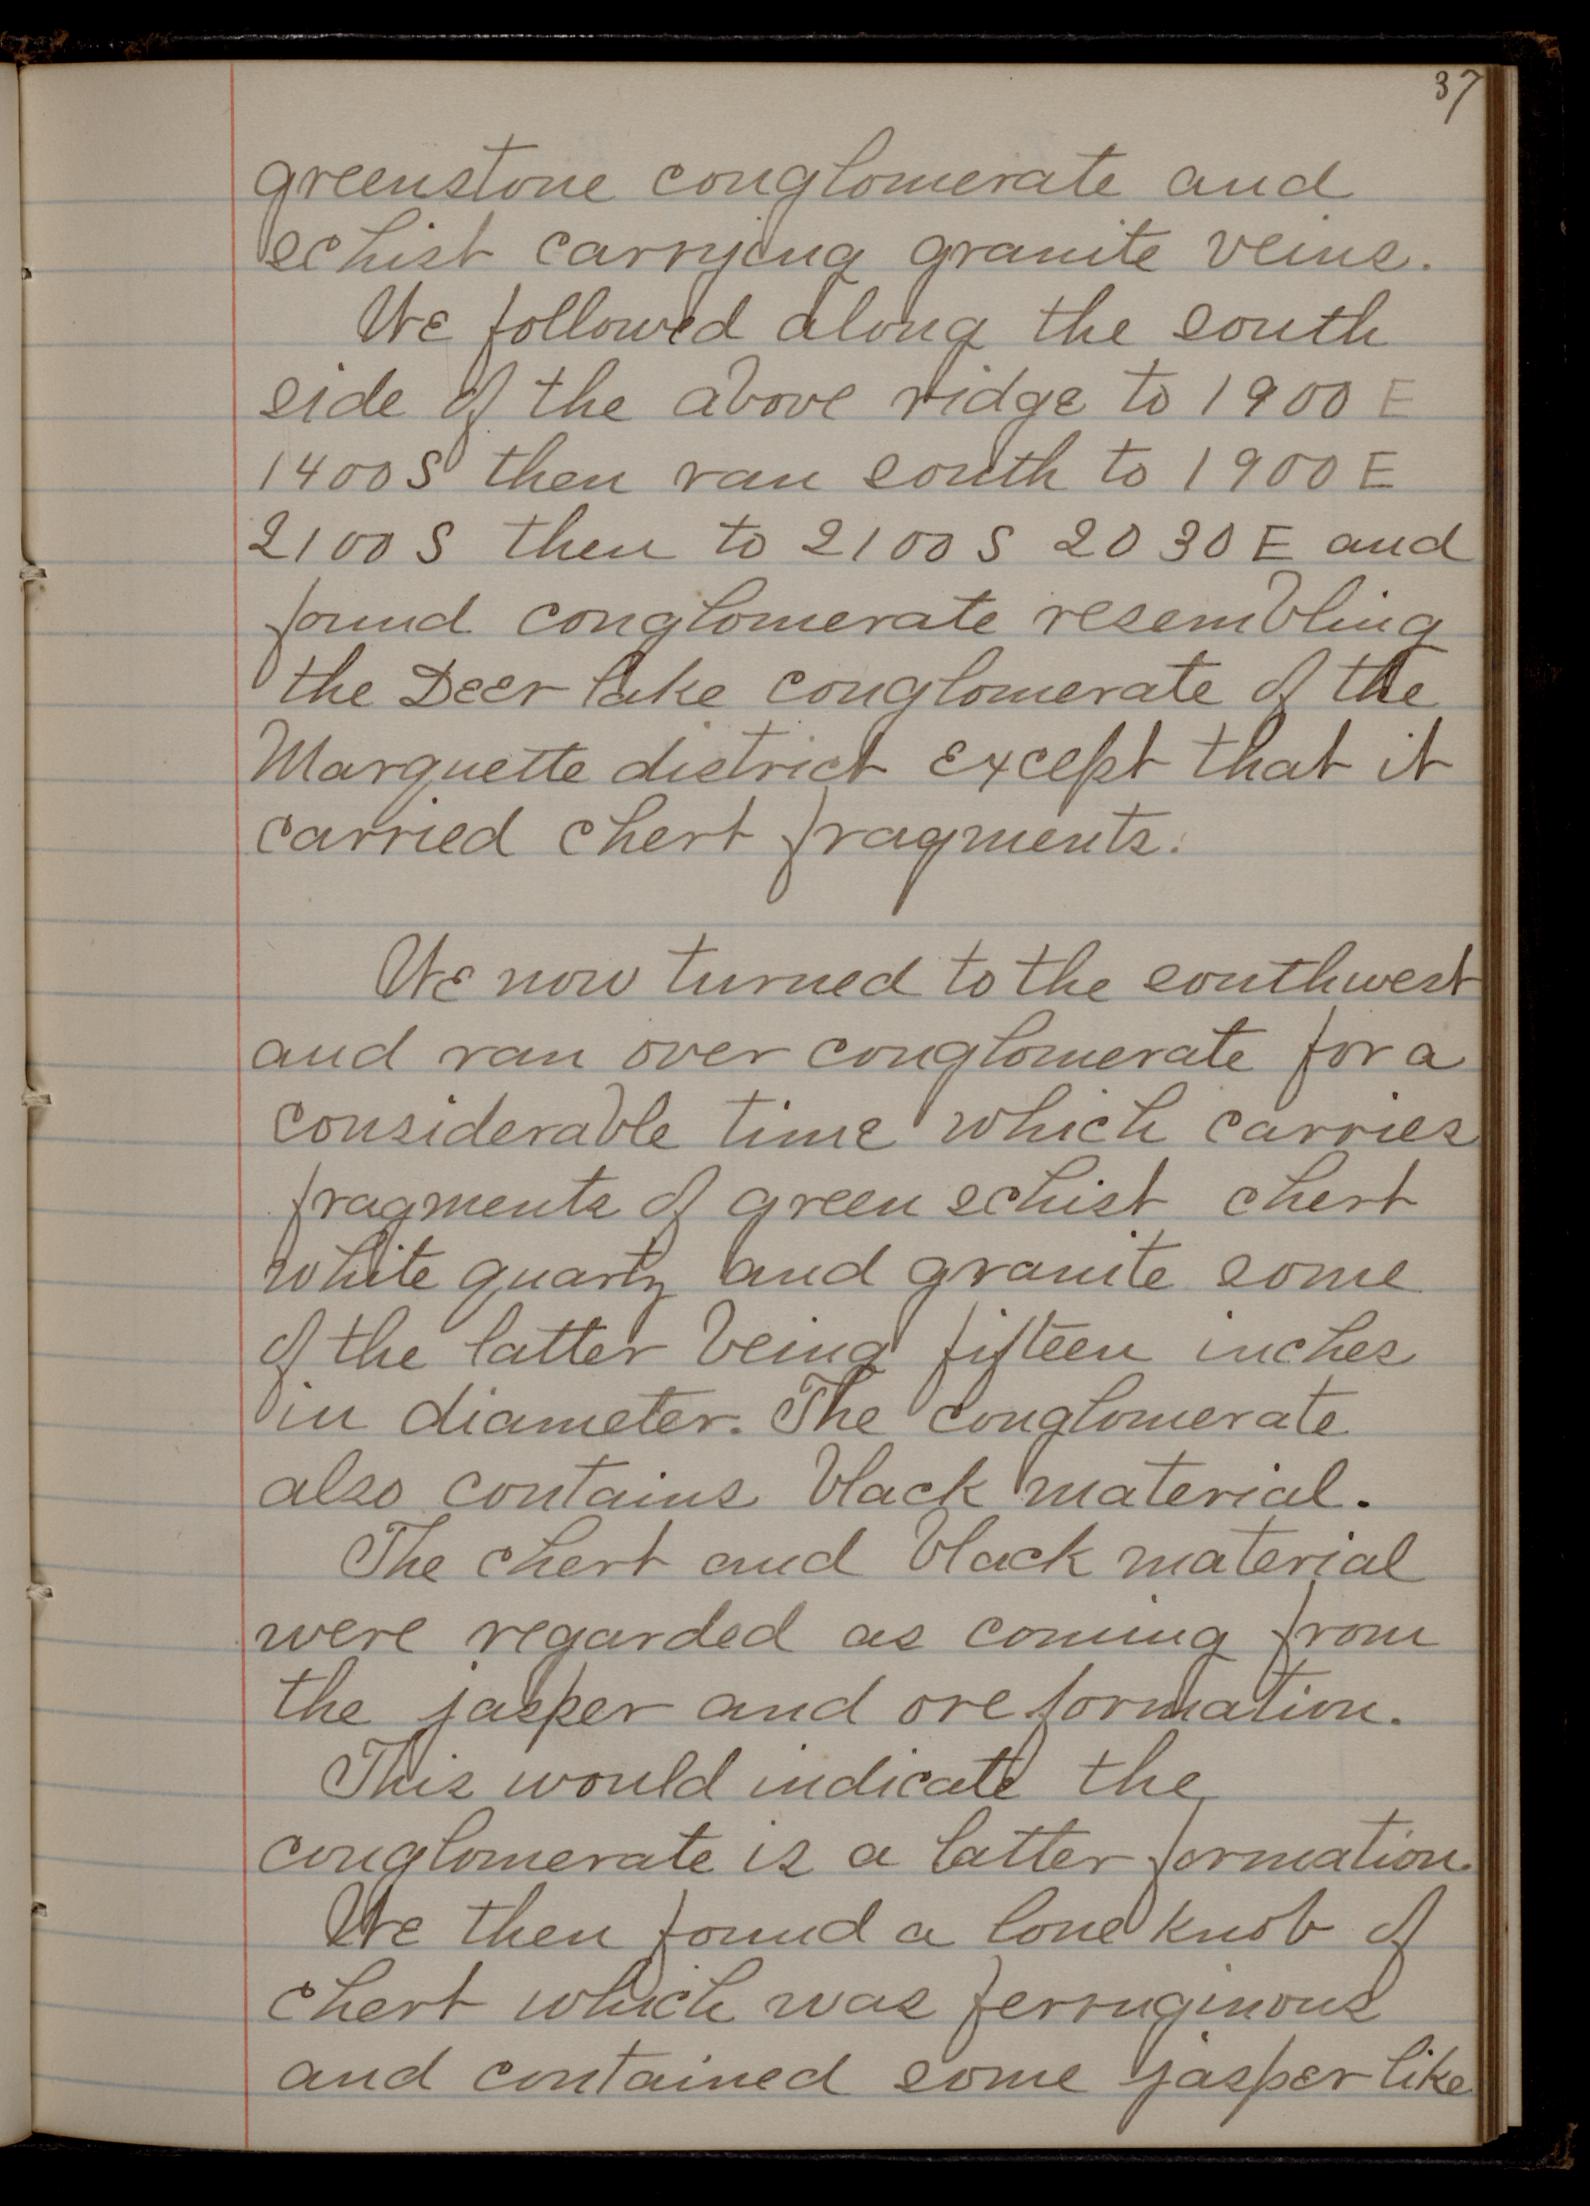 37
greenstone conglomerate and
schist carrying granite veins.
We followed along the south
side of the above ridge to 1900 E
1400 S then ran south to 1900 E
2100 S then to 2100 S 2030 E and
found conglomerate resembling
the Deer lake conglomerate of the
Marquette district except that it
carried chert fragments.
We now turned to the southwest
and ran over conglomerate for a
considerable time which carries
fragments of green schist chert
white quartz and granite some
of the latter being fifteen inches
in diameter. The conglomerate
also contains black material.
The chert and black material
were regarded as coming from
the jasper and ore formation.
This would indicate the
conglomerate is a latter formation.
We then found a lone knob of
chert which was ferruginous
and contained some jasper like